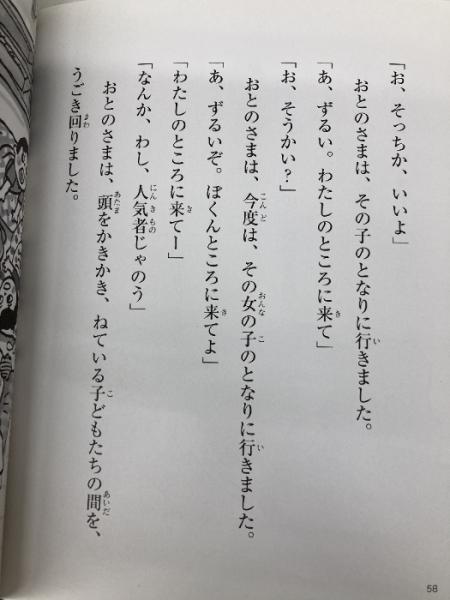 「お、そっちか、いいよ」
おとのさまは、その子のとなりに行きました。
「あ、ずるい。わたしのところに来て」
「お、そうかい？」
おとのさまは、今度は、その女の子のとなりに行きました。
「あ、ずるいぞ。ぼくんところに来てよ」
「わたしのところに来てー」
「なんか、わし、人気者じゃのう」
おとのさまは、頭をかきかき、ねている子どもたちの間を、
うごき回りました。
58